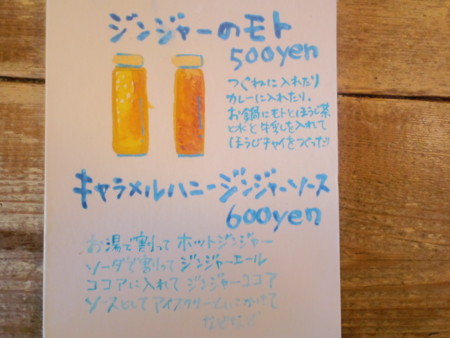 ジンジャーのモト
500yen
つくねに入れたり
カレーに入れたり、
お鍋にモトとほうじ茶
と水と牛乳を入れて
ほうじチャイをつくったり
キャラメルハニージンジャーソース
600yen
お湯で割って ホットジンジャー
ソーダで割って ジンジャーエール
ココアに入れて ジンジャーココア
ソースとして アイスクリームにかけて
などなど